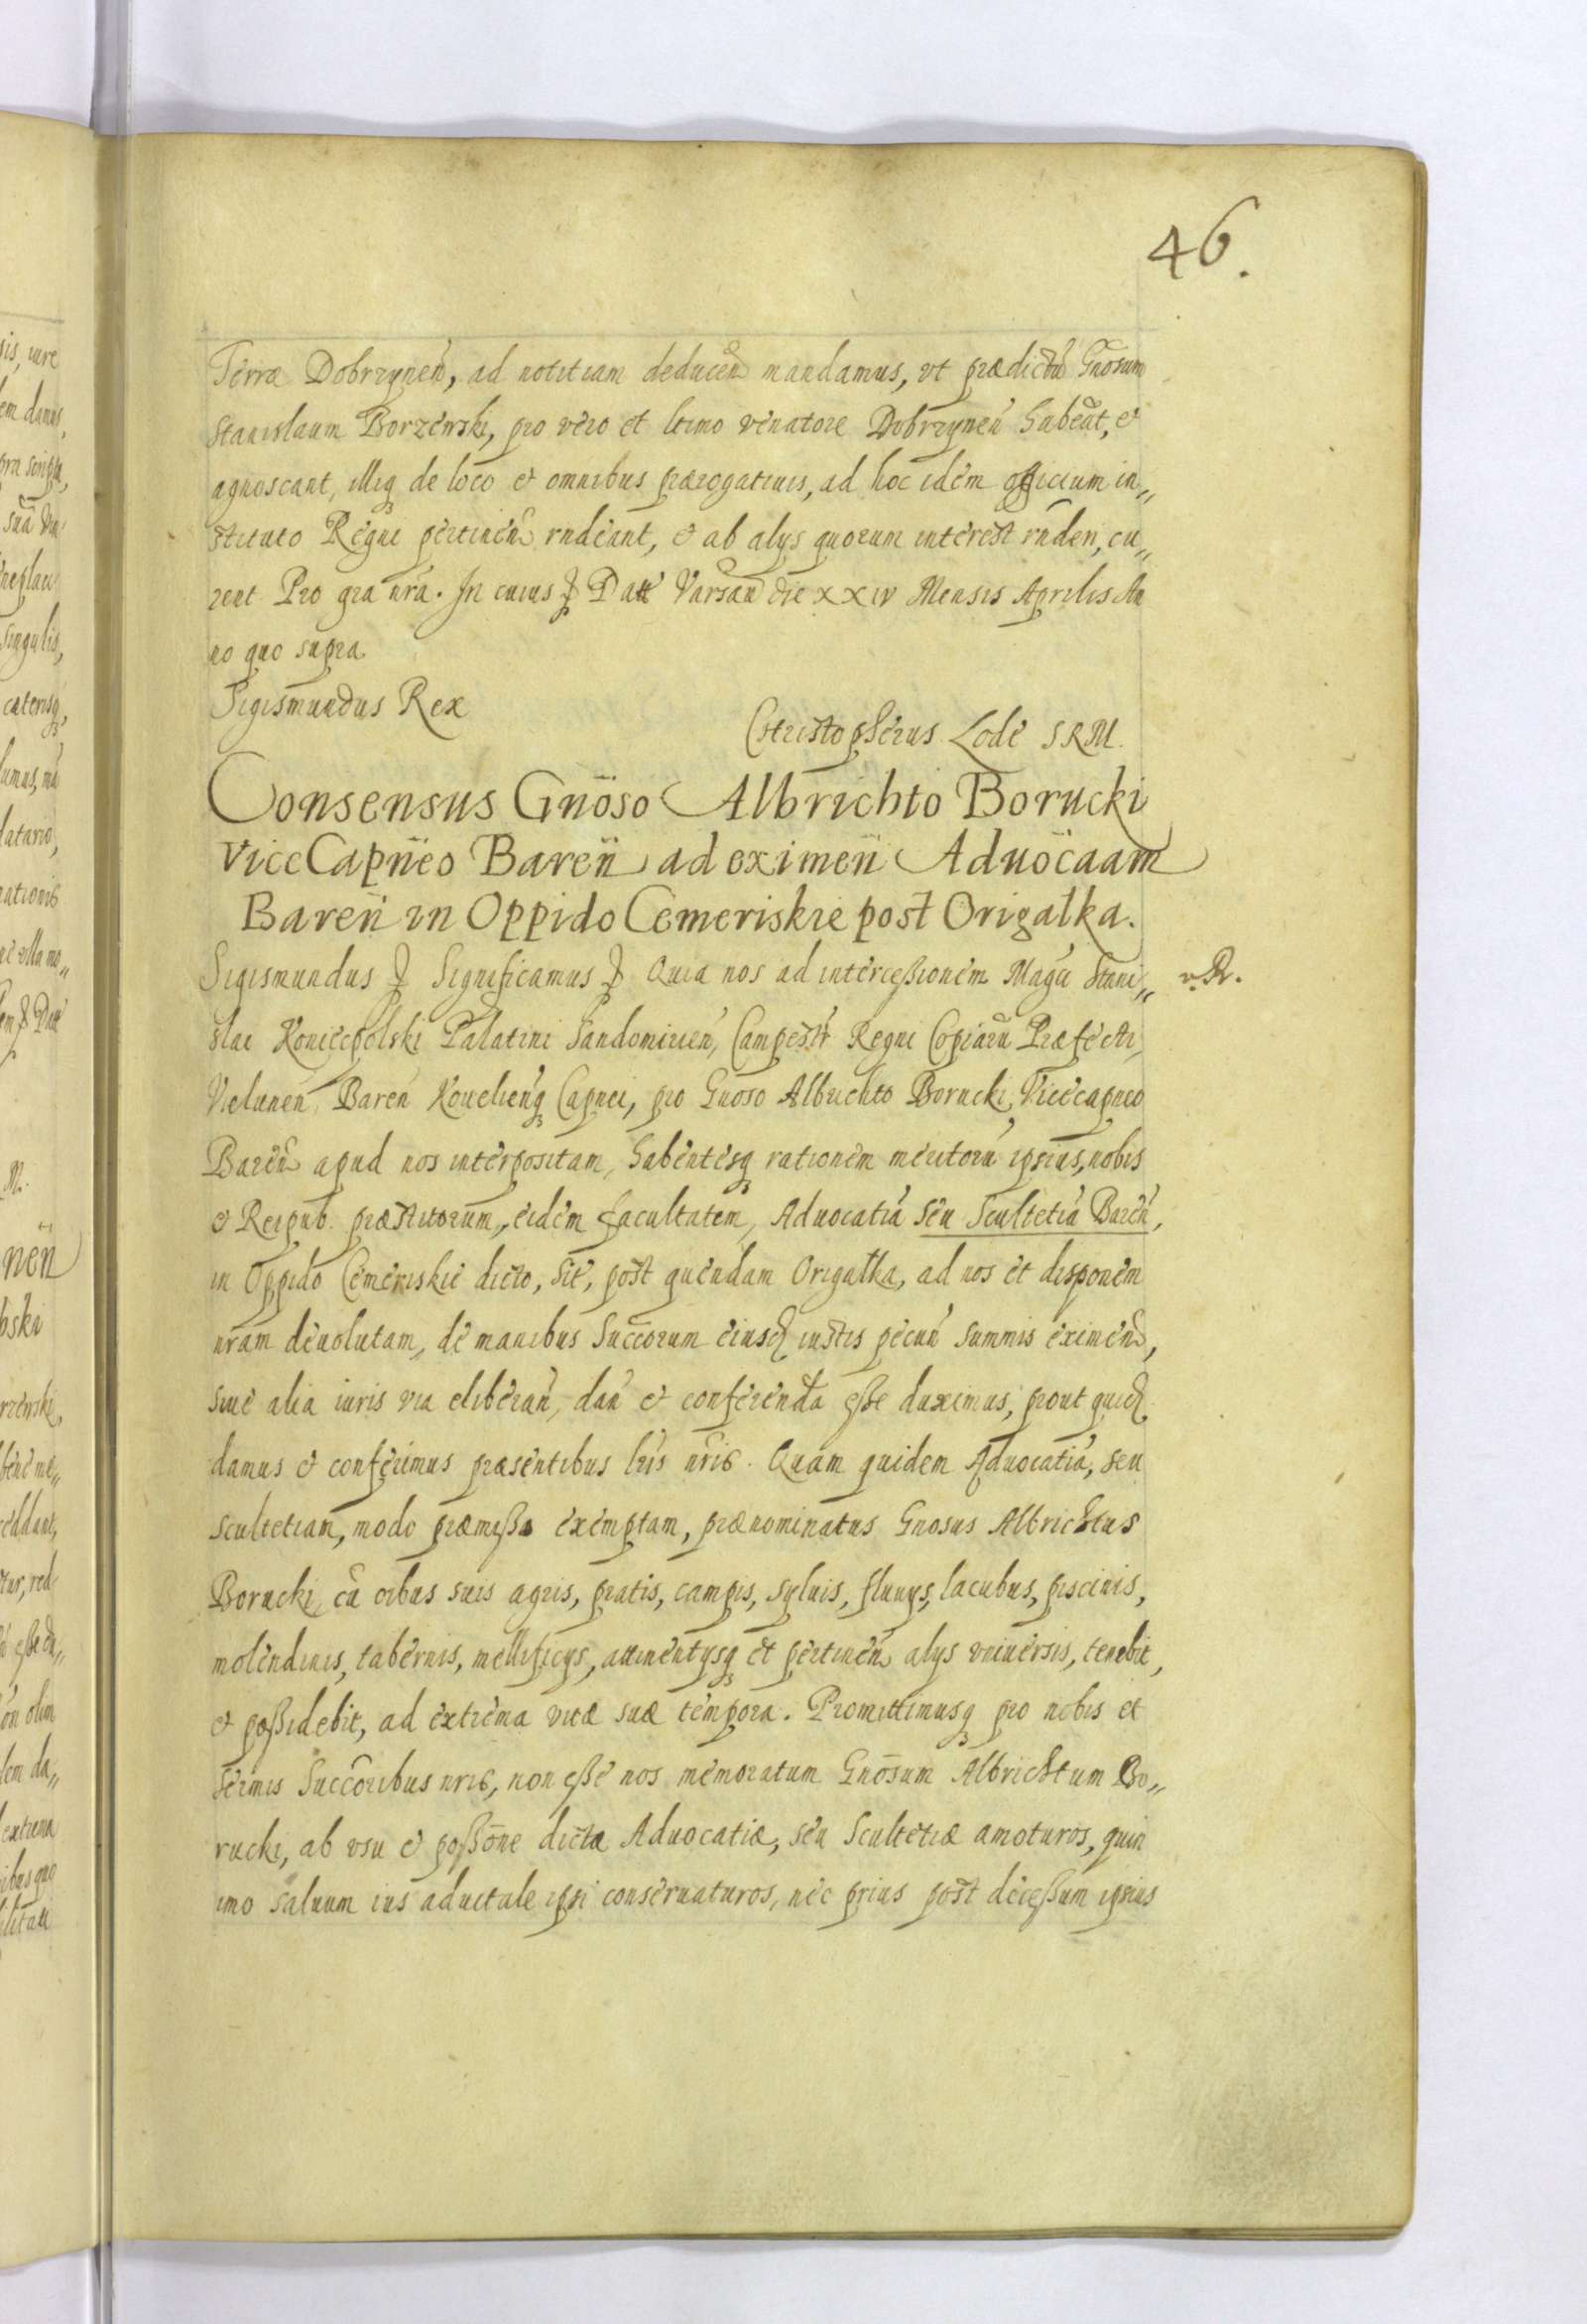 46.
Terræ Dobrzynen̄, ad notitiam deducen̄ mandamus, vt prædictū Gnōsum
Stanislaum Borzewski, pro vero et ltimo venatore Dobrzynen̄ habeāt, &
agnoscant, illiq̄ de loco & omnibus prærogatiuis, ad hoc idem officium in„
stituto Regni pertinen̄ rndeant, & ab alys quorum interest rnderi, cu„
rent Pro gra nra. In cuius Datt Varsau die XXIV Mensis Aprilis An
no quo supra
Sigismundus Rex
Christopherus Lode SRM.
Consensus Gnōso Albrichto Borucki
ViceCapn̄eo Baren̄ ad eximen̄ Aduōcaam
Baren̄ in Oppido Cemeriskie post Origalka.
Sigismundus Significamus Quia nos ad interceßionem Magci Stani„
v. R.
slai Koniecpolski Palatini Sandomirien̄, Campestr Regni Copiarū Præfecti,
Vielunen̄ Baren̄ Kouelien̄q̄ Capnei, pro Gnoso Albrichto Borucki Vicecapneo
Baren̄ apud nos interpositam, habentesq̄ rationem meritorū ipsius, nobis
& Reipub. præstitorum, eidem facultatem, Aduocatiā seu Scultetiā Baren̄,
in Oppido Cemeriskie dicto, sit, post quendam Origalka, ad nos et disponem
nram deuolutam, de manibus Succorum eiusd iustis pecun̄ summis eximen̄,
siue alia iuris via eliberan̄, dan̄ & conferenda eße duximus, prout quid
damus & conferimus præsentibus lris nris. Quam quidem Aduocatiā, seu
Scultetiam, modo præmißo exemptam, prænominatus Gnosus Albrichtus
Borucki, cū oibus suis agris, pratis, campis, syluis, fluuys, lacubus, piscinis,
molendinis, tabernis, mellificys, attinentysq̄ et pertinen̄ alys vniuersis, tenebit,
& poßidebit, ad extrema vitæ suæ tempora. Promittimusq̄ pro nobis et
Sermis Succoribus nris, non eße nos memoratum Gnōsum Albrichtum Bo„
rucki, ab vsu & poßōne dictæ Aduocatiæ, seu Scultetiæ amoturos, quin
imo saluum ius aduitale ipsi conseruaturos, nec prius post deceßum ipsius